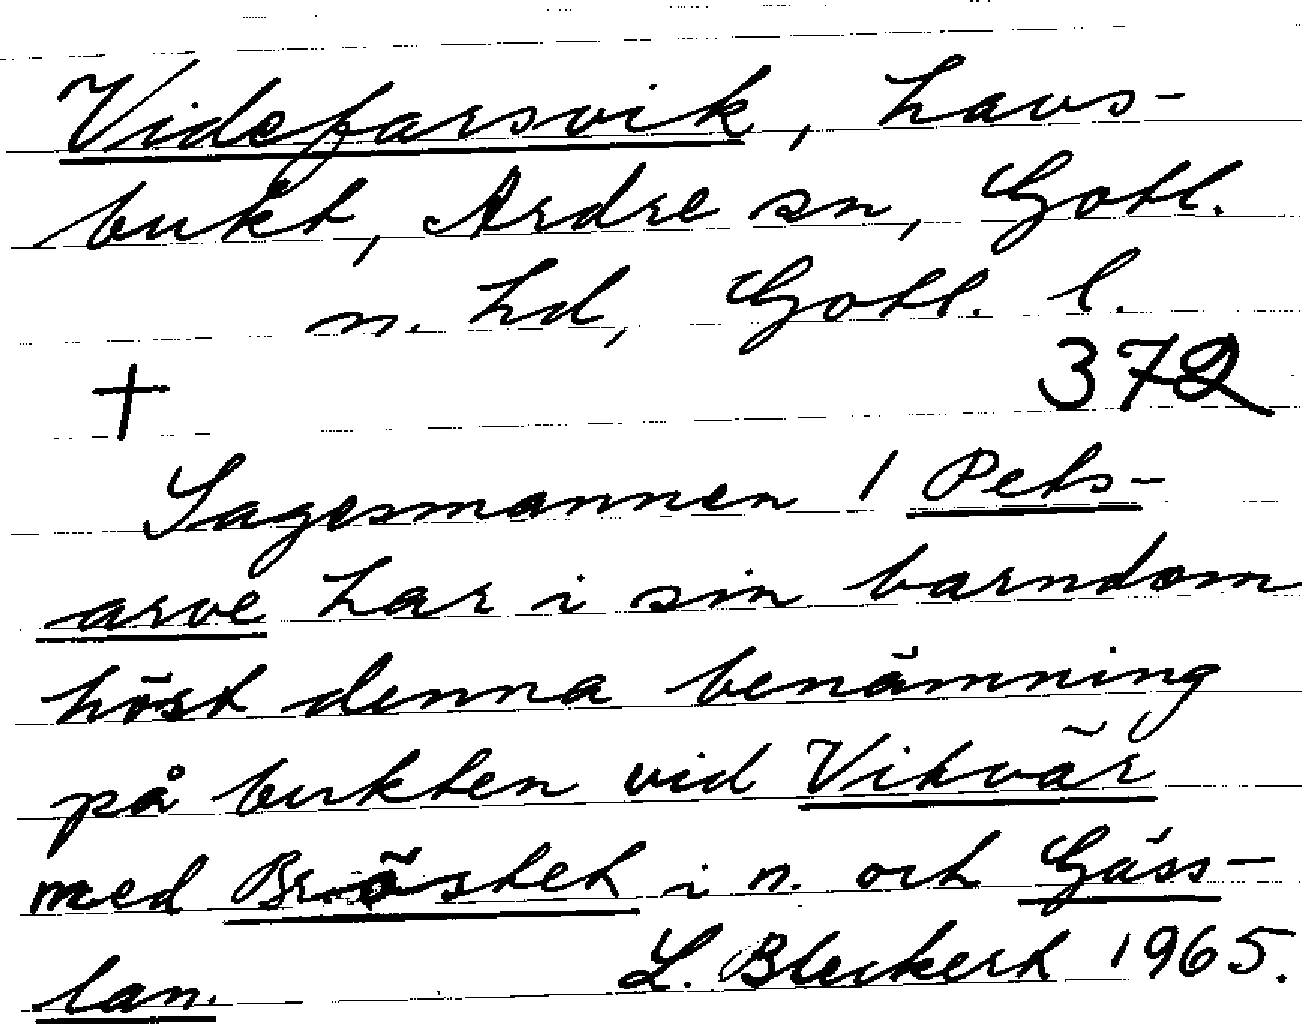 Videfarsvik, havs-
bukt, Ardre sn, Gotl.
n. hd, Gotl. l.
† 372
Sagesmannen / Pets-
arve har i sin barndom
höst denna benämning
på bukten vid Vitvär
med Bröstet i n. och Gäss-
lan. L. Bleckert 1965.